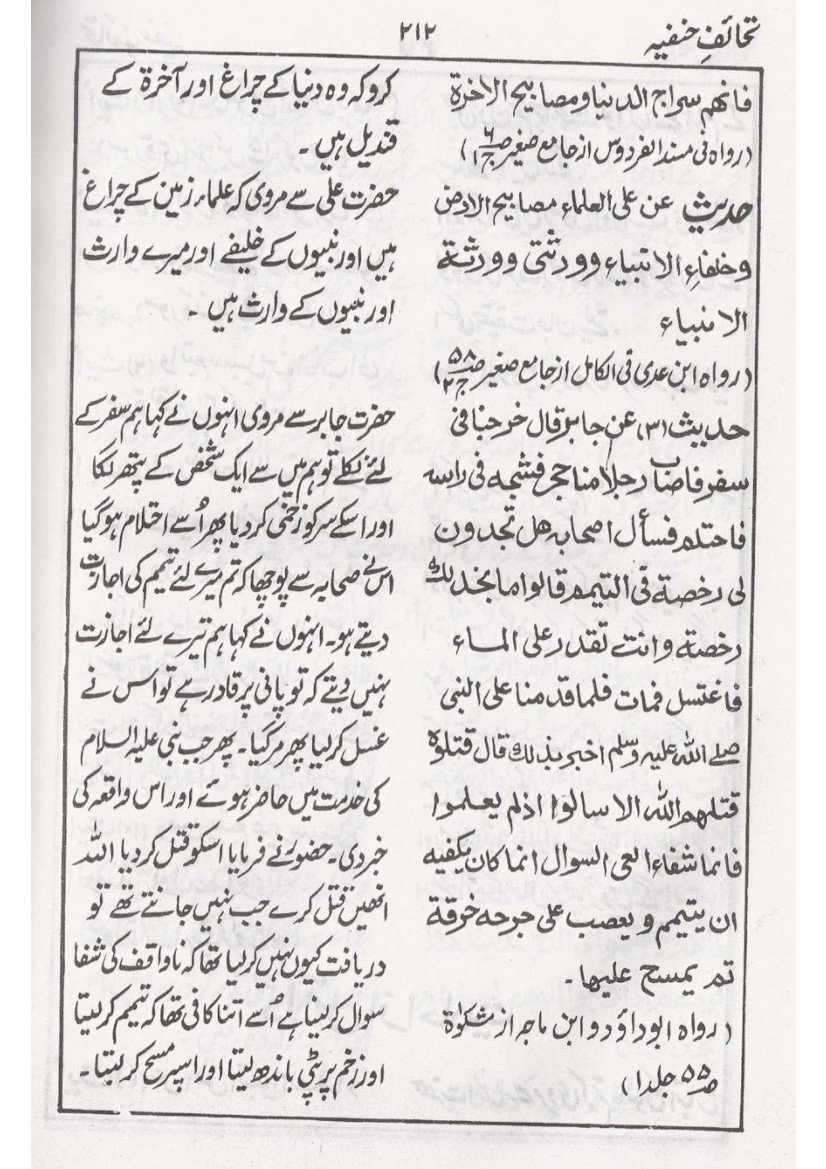 تحائفِ حنفیہ
۲۱۲
فانھم سراج الدنیا ومصابیح الاخرۃ
(رواہ فی مسند الفردوس از جامع صغیر صـ۶ جـ۱)
حدیث عن علی العلماء مصابیح الارض
وخلفاءِ الانبیاء وورثتی وورثۃ
الانبیاء
(رواہ ابن عدی فی الکامل از جامع صغیر صـ۵۸ جـ۲)
حدیث (۳) عن جابر قال خرجنا فی
سفر فاصاب رجلا منا حجر فشجہ فی راسہ
فاحتلم فسأل اصحابہ ھل تجدون
لی رخصۃ فی التیمم قالوا ما نجد لک
رخصۃ وانت تقدر علی الماء
فاغتسل فمات فلما قدمنا علی النبی
صلے اللہ علیہ وسلم اخبر بذلک قال قتلوہ
قتلھم اللہ الا سالوا اذ لم یعلموا
فانما شفاء العی السوال انما کان یکفیہ
ان یتیمم ویعصب علی جرحہ خرقۃ
ثم یمسح علیھا۔
(رواہ ابو داؤد و ابن ماجہ از مشکوٰۃ
صـ۵۵ جلد۱)
کرو کہ وہ دنیا کے چراغ اور آخرۃ کے
قندیل ہیں۔
حضرت علی سے مروی کہ علماء زمین کے چراغ
ہیں اور نبیوں کے خلیفے اور میرے وارث
اور نبیوں کے وارث ہیں۔
حضرت جابر سے مروی انہوں نے کہا ہم سفر کے
لئے نکلے تو ہم میں سے ایک شخص کے پتھر لگا
اور اسکے سر کو زخمی کر دیا پھر اُسے احتلام ہو گیا
اس نے صحابہ سے پوچھا کہ تم میرے لئے تیمم کی اجازت
دیتے ہو۔ انہوں نے کہا ہم تیرے لئے اجازت
نہیں دیتے کہ تو پانی پر قادر ہے تو اس نے
غسل کر لیا پھر مر گیا۔ پھر جب نبی علیہ السلام
کی خدمت میں حاضر ہوئے اور اس واقعہ کی
خبر دی۔ حضور نے فرمایا اسکو قتل کر دیا اللہ
انھیں قتل کرے جب نہیں جانتے تھے تو
دریافت کیوں نہیں کر لیا تھا کہ ناواقف کی شفا
سوال کر لینا ہے اُسے اتنا کافی تھا کہ تیمم کر لیتا
اور زخم پر پٹی باندھ لیتا اور اسپر مسح کر لیتا۔